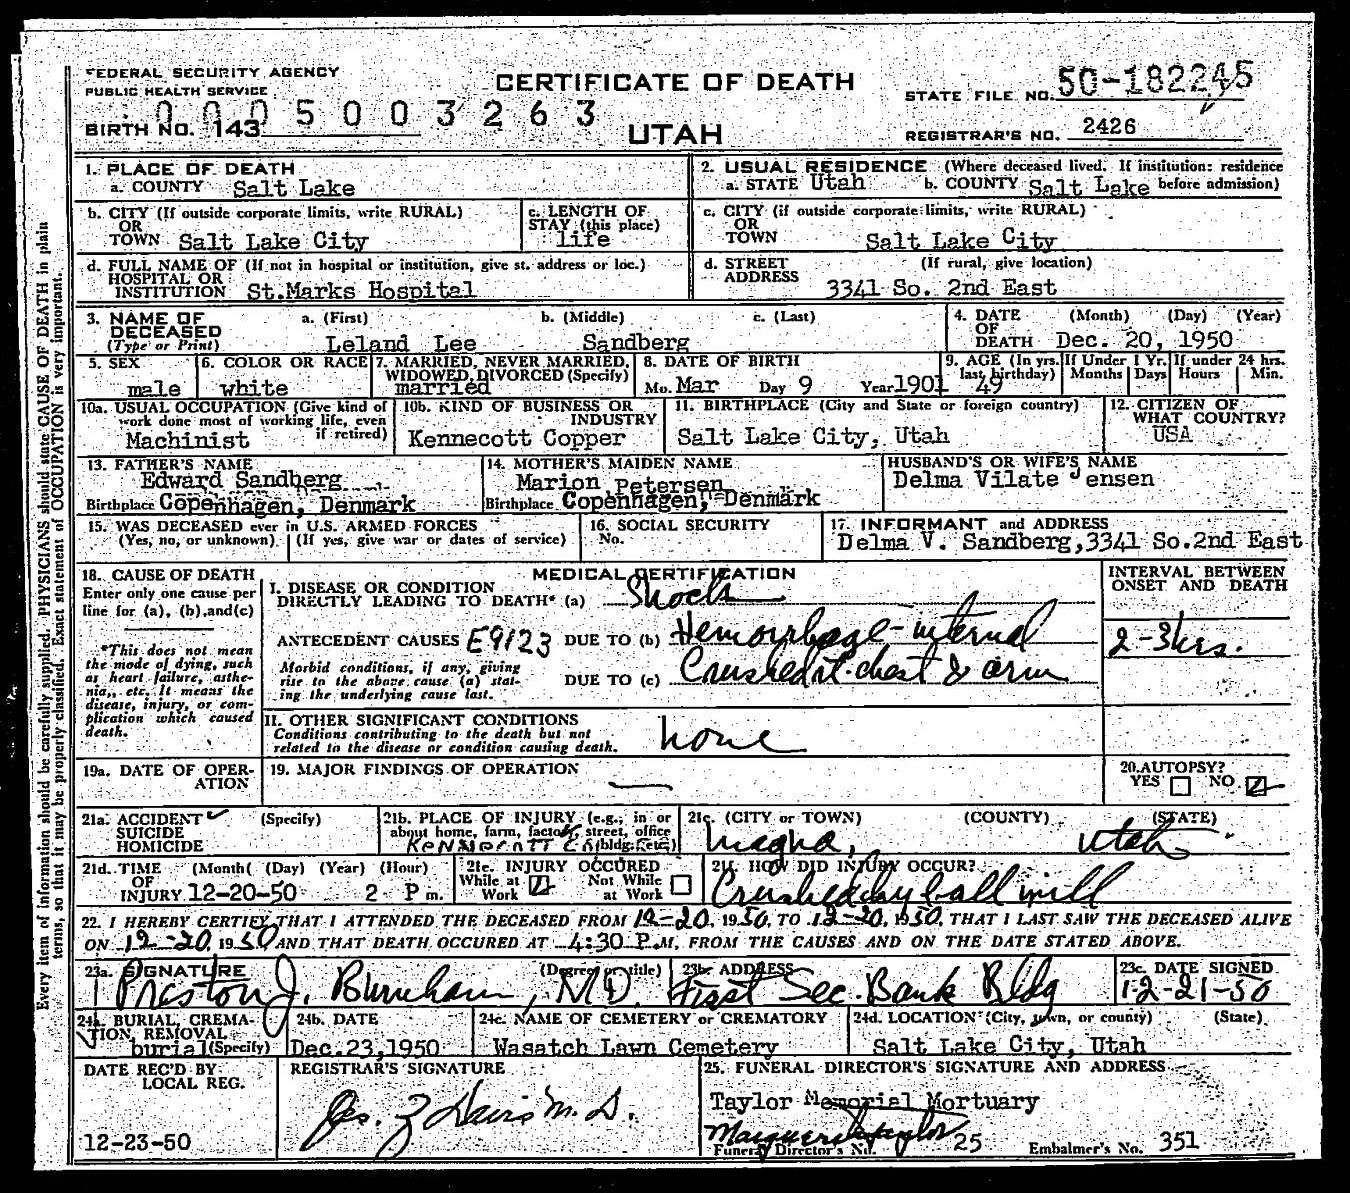 FEDERAL SECURITY AGENCY
PUBLIC HEALTH SERVICE
CERTIFICATE OF DEATH
STATE FILE NO. 50-182245
0005003263
BIRTH NO. 143
UTAH
REGISTRAR'S NO. 2426
1. PLACE OF DEATH
a. COUNTY Salt Lake
2. USUAL RESIDENCE (Where deceased lived. If institution: residence before admission)
a. STATE Utah b. COUNTY Salt Lake
b. CITY (If outside corporate limits, write RURAL)
OR
TOWN Salt Lake City
c. LENGTH OF
STAY (this place)
life
c. CITY (if outside corporate limits, write RURAL)
OR
TOWN Salt Lake City
d. FULL NAME OF (If not in hospital or institution, give st. address or loc.)
HOSPITAL OR
INSTITUTION St.Marks Hospital
d. STREET (If rural, give location)
ADDRESS
3341 So. 2nd East
3. NAME OF
DECEASED
(Type or Print)
a. (First) b. (Middle) c. (Last)
Leland Lee Sandberg
4. DATE (Month) (Day) (Year)
OF
DEATH Dec. 20, 1950
5. SEX
male
6. COLOR OR RACE
white
7. MARRIED, NEVER MARRIED,
WIDOWED, DIVORCED (Specify)
married
8. DATE OF BIRTH
Mo. Mar Day 9 Year 1901
9. AGE (In yrs. last birthday) 49
If Under 1 Yr. Months Days
If under 24 hrs. Hours Min.
10a. USUAL OCCUPATION (Give kind of
work done most of working life, even
if retired)
Machinist
10b. KIND OF BUSINESS OR
INDUSTRY
Kennecott Copper
11. BIRTHPLACE (City and State or foreign country)
Salt Lake City, Utah
12. CITIZEN OF
WHAT COUNTRY?
USA
13. FATHER'S NAME
Edward Sandberg
Birthplace Copenhagen, Denmark
14. MOTHER'S MAIDEN NAME
Marion Petersen
Birthplace Copenhagen, Denmark
HUSBAND'S OR WIFE'S NAME
Delma Vilate Jensen
15. WAS DECEASED ever in U.S. ARMED FORCES
(Yes, no, or unknown) (If yes, give war or dates of service)
16. SOCIAL SECURITY
No.
17. INFORMANT and ADDRESS
Delma V. Sandberg, 3341 So.2nd East
18. CAUSE OF DEATH
Enter only one cause per
line for (a), (b), and (c)
*This does not mean
the mode of dying, such
as heart failure, asthe-
nia, etc. It means the
disease, injury, or com-
plication which caused
death.
MEDICAL CERTIFICATION
I. DISEASE OR CONDITION
DIRECTLY LEADING TO DEATH* (a) Shock
ANTECEDENT CAUSES E9123 DUE TO (b) Hemorrhage-internal
Morbid conditions, if any, giving
rise to the above cause (a) stat-
ing the underlying cause last.
DUE TO (c) Crushed rt. chest & arm
INTERVAL BETWEEN
ONSET AND DEATH
2-3 hrs.
II. OTHER SIGNIFICANT CONDITIONS
Conditions contributing to the death but not
related to the disease or condition causing death.
none
19a. DATE OF OPER-
ATION
19. MAJOR FINDINGS OF OPERATION
20. AUTOPSY?
YES NO
21a. ACCIDENT (Specify)
SUICIDE
HOMICIDE
21b. PLACE OF INJURY (e.g., in or
about home, farm, factory, street, office
bldg. etc.)
21c. (CITY or TOWN) (COUNTY) (STATE)
Magna, Utah
21d. TIME (Month) (Day) (Year) (Hour)
OF
INJURY 12-20-50 2 P m.
21e. INJURY OCCURED
While at Work Not While at Work
21f. HOW DID INJURY OCCUR?
Crushed by ball mill
22. I HEREBY CERTIFY THAT I ATTENDED THE DECEASED FROM 12-20, 1950, TO 12-20, 1950, THAT I LAST SAW THE DECEASED ALIVE
ON 12-20, 1950 AND THAT DEATH OCCURED AT 4:30 P.M, FROM THE CAUSES AND ON THE DATE STATED ABOVE.
23a. SIGNATURE (Degree or title)
Preston J. Burnham, MD
23b. ADDRESS
First Sec. Bank Bldg
23c. DATE SIGNED
12-21-50
24a. BURIAL, CREMA-
TION, REMOVAL
burial (Specify)
24b. DATE
Dec. 23, 1950
24c. NAME OF CEMETERY or CREMATORY
Wasatch Lawn Cemetery
24d. LOCATION (City, town, or county) (State)
Salt Lake City, Utah
DATE REC'D BY
LOCAL REG.
12-23-50
REGISTRAR'S SIGNATURE
M. D.
25. FUNERAL DIRECTOR'S SIGNATURE AND ADDRESS
Taylor Memorial Mortuary
Funeral Director's No. 25 Embalmer's No. 351
Every item of information should be carefully supplied. PHYSICIANS should state CAUSE OF DEATH in plain
terms, so that it may be properly classified. Exact statement of OCCUPATION is very important.